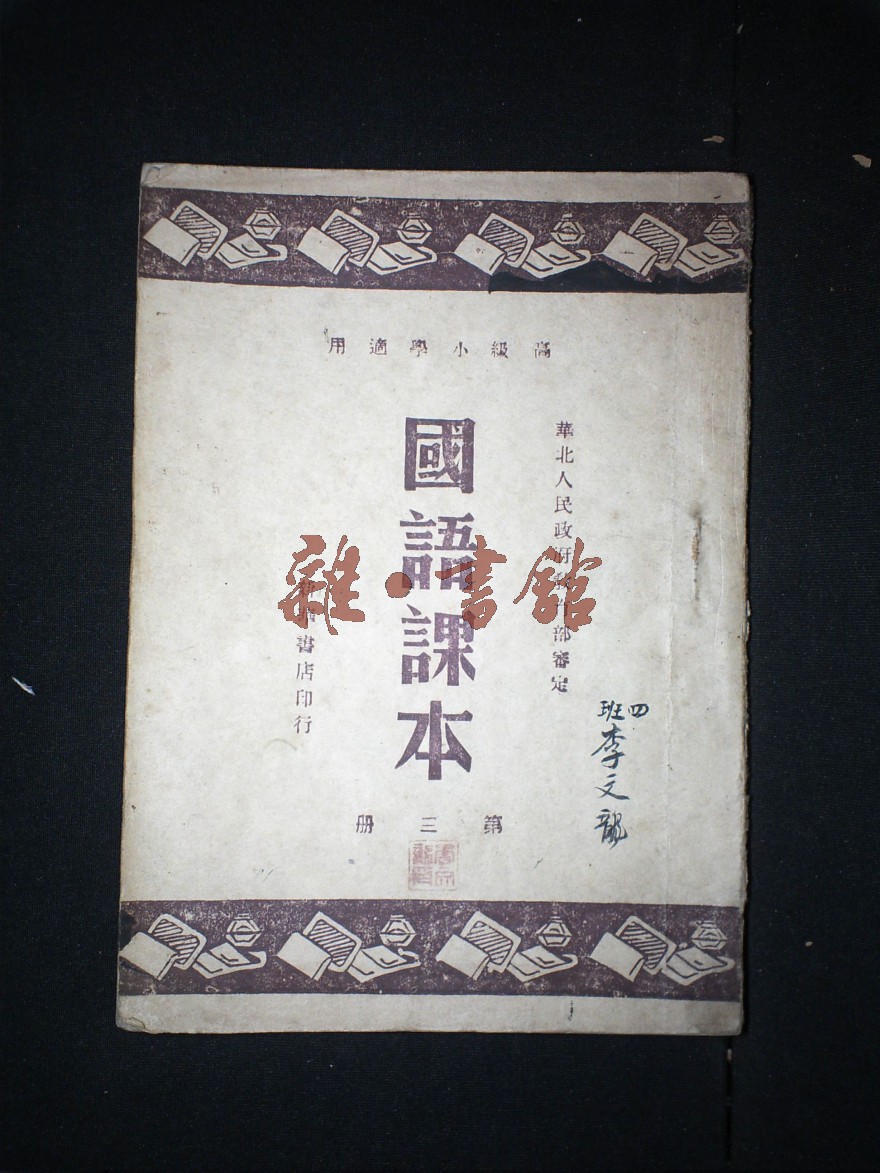 高級小學適用
華北人民政府教育部審定
國語課本
新華書店印行
第三冊
四班
李文龍
雜·書館